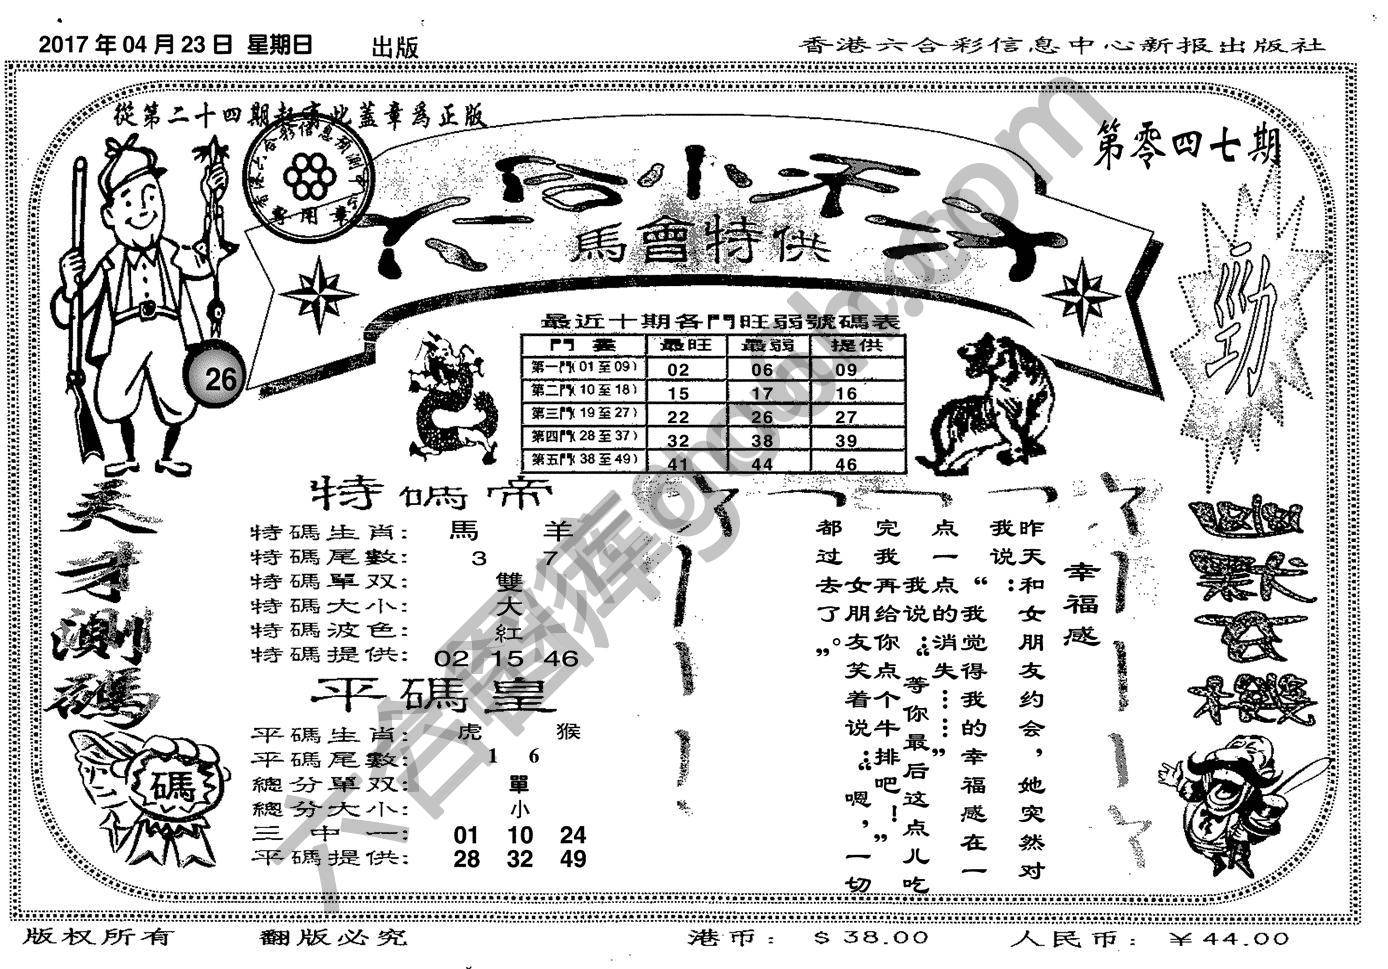 2017 年 04 月 23 日 星期日 出版
香港六合彩信息中心新报出版社
從第二十四期起寄此蓋章爲正版
第零四七期
六合小天才
馬會特供
專用章
勁
26
最近十期各門旺弱號碼表
最旺 最弱 提供
第一門(01至09) 02 06 09
第二門(10至18) 15 17 16
第三門(19至27) 22 26 27
第四門(28至37) 32 38 39
第五門(38至49) 41 44 46
天才測碼
碼
特碼帝
特碼生肖: 馬 羊
特碼尾數: 3 7
特碼單双: 雙
特碼大小: 大
特碼波色: 紅
特碼提供: 02 15 46
平碼皇
平碼生肖: 虎 猴
平碼尾數: 1 6
總分單双: 單
總分大小: 小
三中一: 01 10 24
平碼提供: 28 32 49
幸福感
昨天和女朋友约会，她突然对
我说：“我觉得我的幸福感在一
点一点的消失……”
我说：“等你最后这点儿吃
完我再给你点个牛排吧！”
女朋友笑着说：“嗯，一切
都过去了。”
六合图库
版权所有 翻版必究 港币：$38.00 人民币：￥44.00